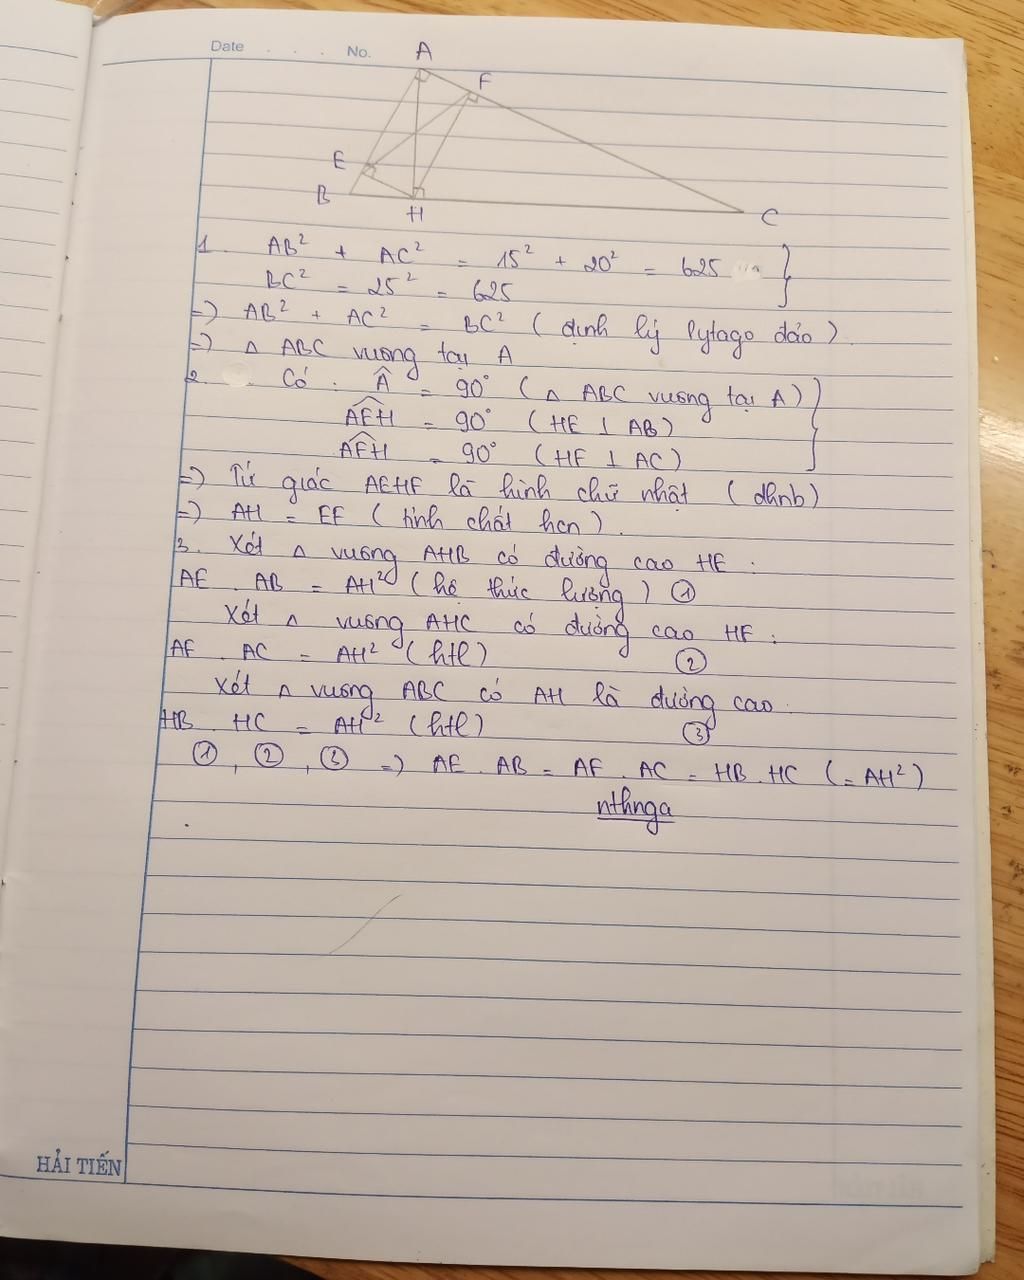 Date . . . No.
A
F
E
B
H
C
1. AB² + AC² = 15² + 20² = 625
BC² = 25² = 625
=) AB² + AC² = BC² (định lý Pytago đảo).
=) △ ABC vuông tại A
2. Có : Â = 90° (△ ABC vuông tại A)
AEH = 90° (HE ⊥ AB)
AFH = 90° (HF ⊥ AC)
=) Tứ giác AEHF là hình chữ nhật (dhnb)
=) AH = EF (tính chất hcn).
3. Xét △ vuông AHB có đường cao HE :
AE . AB = AH² (hệ thức lượng) ①
Xét △ vuông AHC có đường cao HF :
AF . AC = AH² (htl) ②
Xét △ vuông ABC có AH là đường cao.
HB . HC = AH² (htl) ③
①, ②, ③ =) AE . AB = AF . AC = HB . HC (= AH²)
nthnga
HẢI TIẾN